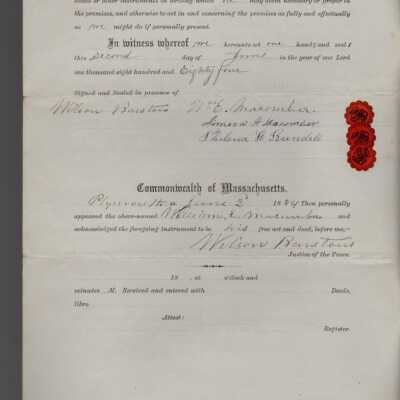 the premises, and otherwise to act in and concerning the premises as fully and effectually
as we might do if personally present.
In witness whereof we hereunto set our hands and seal s
this second day of June in the year of our Lord
one thousand eight hundred and Eighty four
Signed and Sealed in presence of
Wilson Barstow Wm E. Macomber
H Macomber
Philena H Rundell
Commonwealth of Massachusetts.
Plymouth June 2d 1884 Then personally
appeared the above-named William E. Macomber and
acknowledged the foregoing instrument to be his free act and deed, before me,
Wilson Barstow
Justice of the Peace.
18 , at o'clock and
minutes M. Received and entered with Deeds,
libro
Attest:
Register.